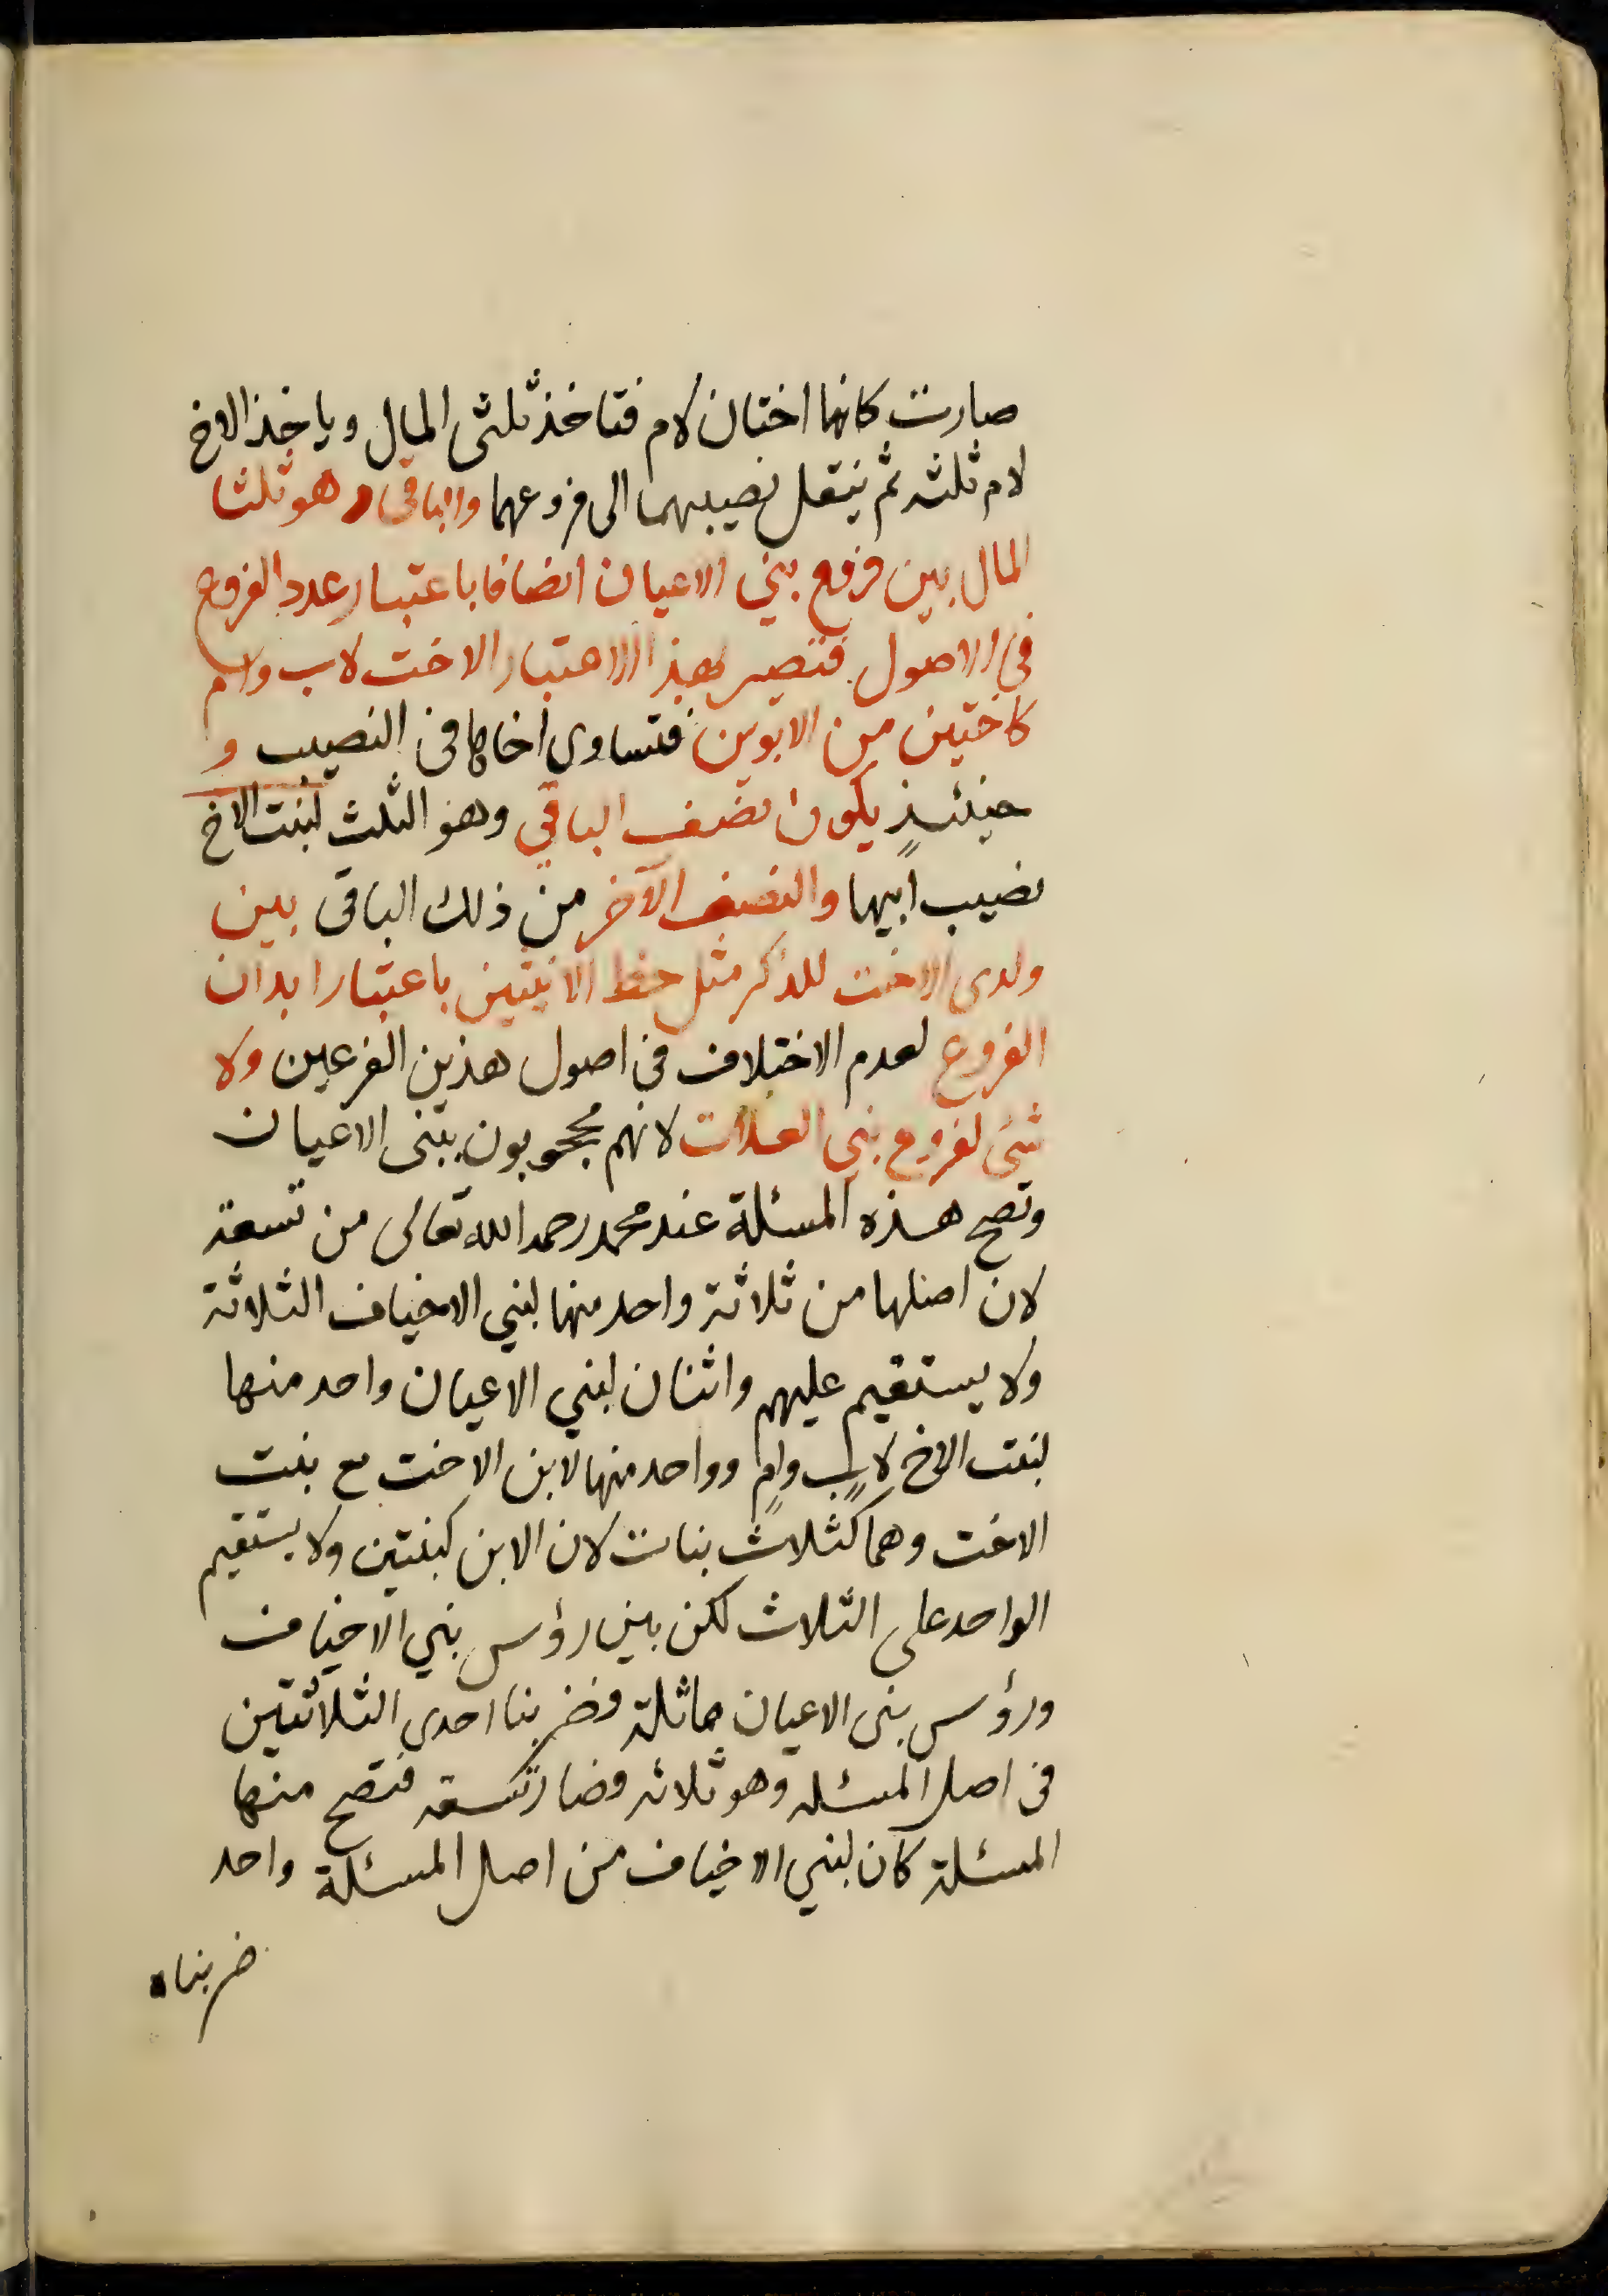 صارت كانها اختان لام فتاخذ ثلثى المال وياخذ الاخ
لام ثلثه ثم ينتقل نصيبهما الى فروعهما والباقى وهو ثلثا
المال بين فروع بنى الاعيان انصافا باعتبار عدد الفروع
فى الاصول فتصير بهذا الاعتبار الاخت لاب وام
كاختين من الابوين فتساوى اخاها فى النصيب و
حينئذٍ يكون نصف الباقى وهو الثلث لبنت الاخ
نصيب ابيها والنصف الآخر من ذلك الباقى بين
ولدى الاخت للذكر مثل حظ الانثيين باعتبار ابدان
الفروع لعدم الاختلاف فى اصول هذين الفرعين ولا
شئ لفروع بنى العلات لانهم محجوبون ببنى الاعيان
وتصح هذه المسئلة عند محمد رحمه الله تعالى من تسعة
لان اصلها من ثلاثة واحد منها لبني الاخياف الثلاثة
ولا يستقيم عليهم واثنان لبني الاعيان واحد منها
لبنت الاخ لابٍ وامٍ وواحد منها لابن الاخت مع بنت
الاخت وهما كثلاث بنات لان الابن كبنتين ولا يستقيم
الواحد على الثلاث لكن بين رؤس بني الاخياف
ورؤس بنى الاعيان مماثلة فضربنا احدى الثلاثتين
فى اصل المسئله وهو ثلاثه فصار تسعة فتصح منها
المسئلة كان لبني الاخياف من اصل المسئلة واحد
ضربناه